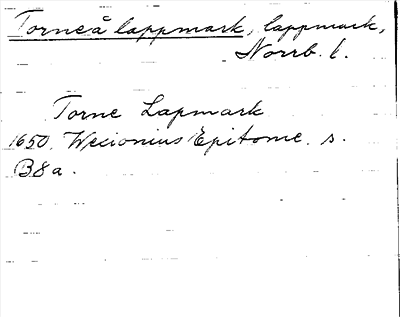 Torneå lappmark, lappmark,
Norrb. l.
Torne Lapmark
1650. Wecionius Epitome. s.
B8a.